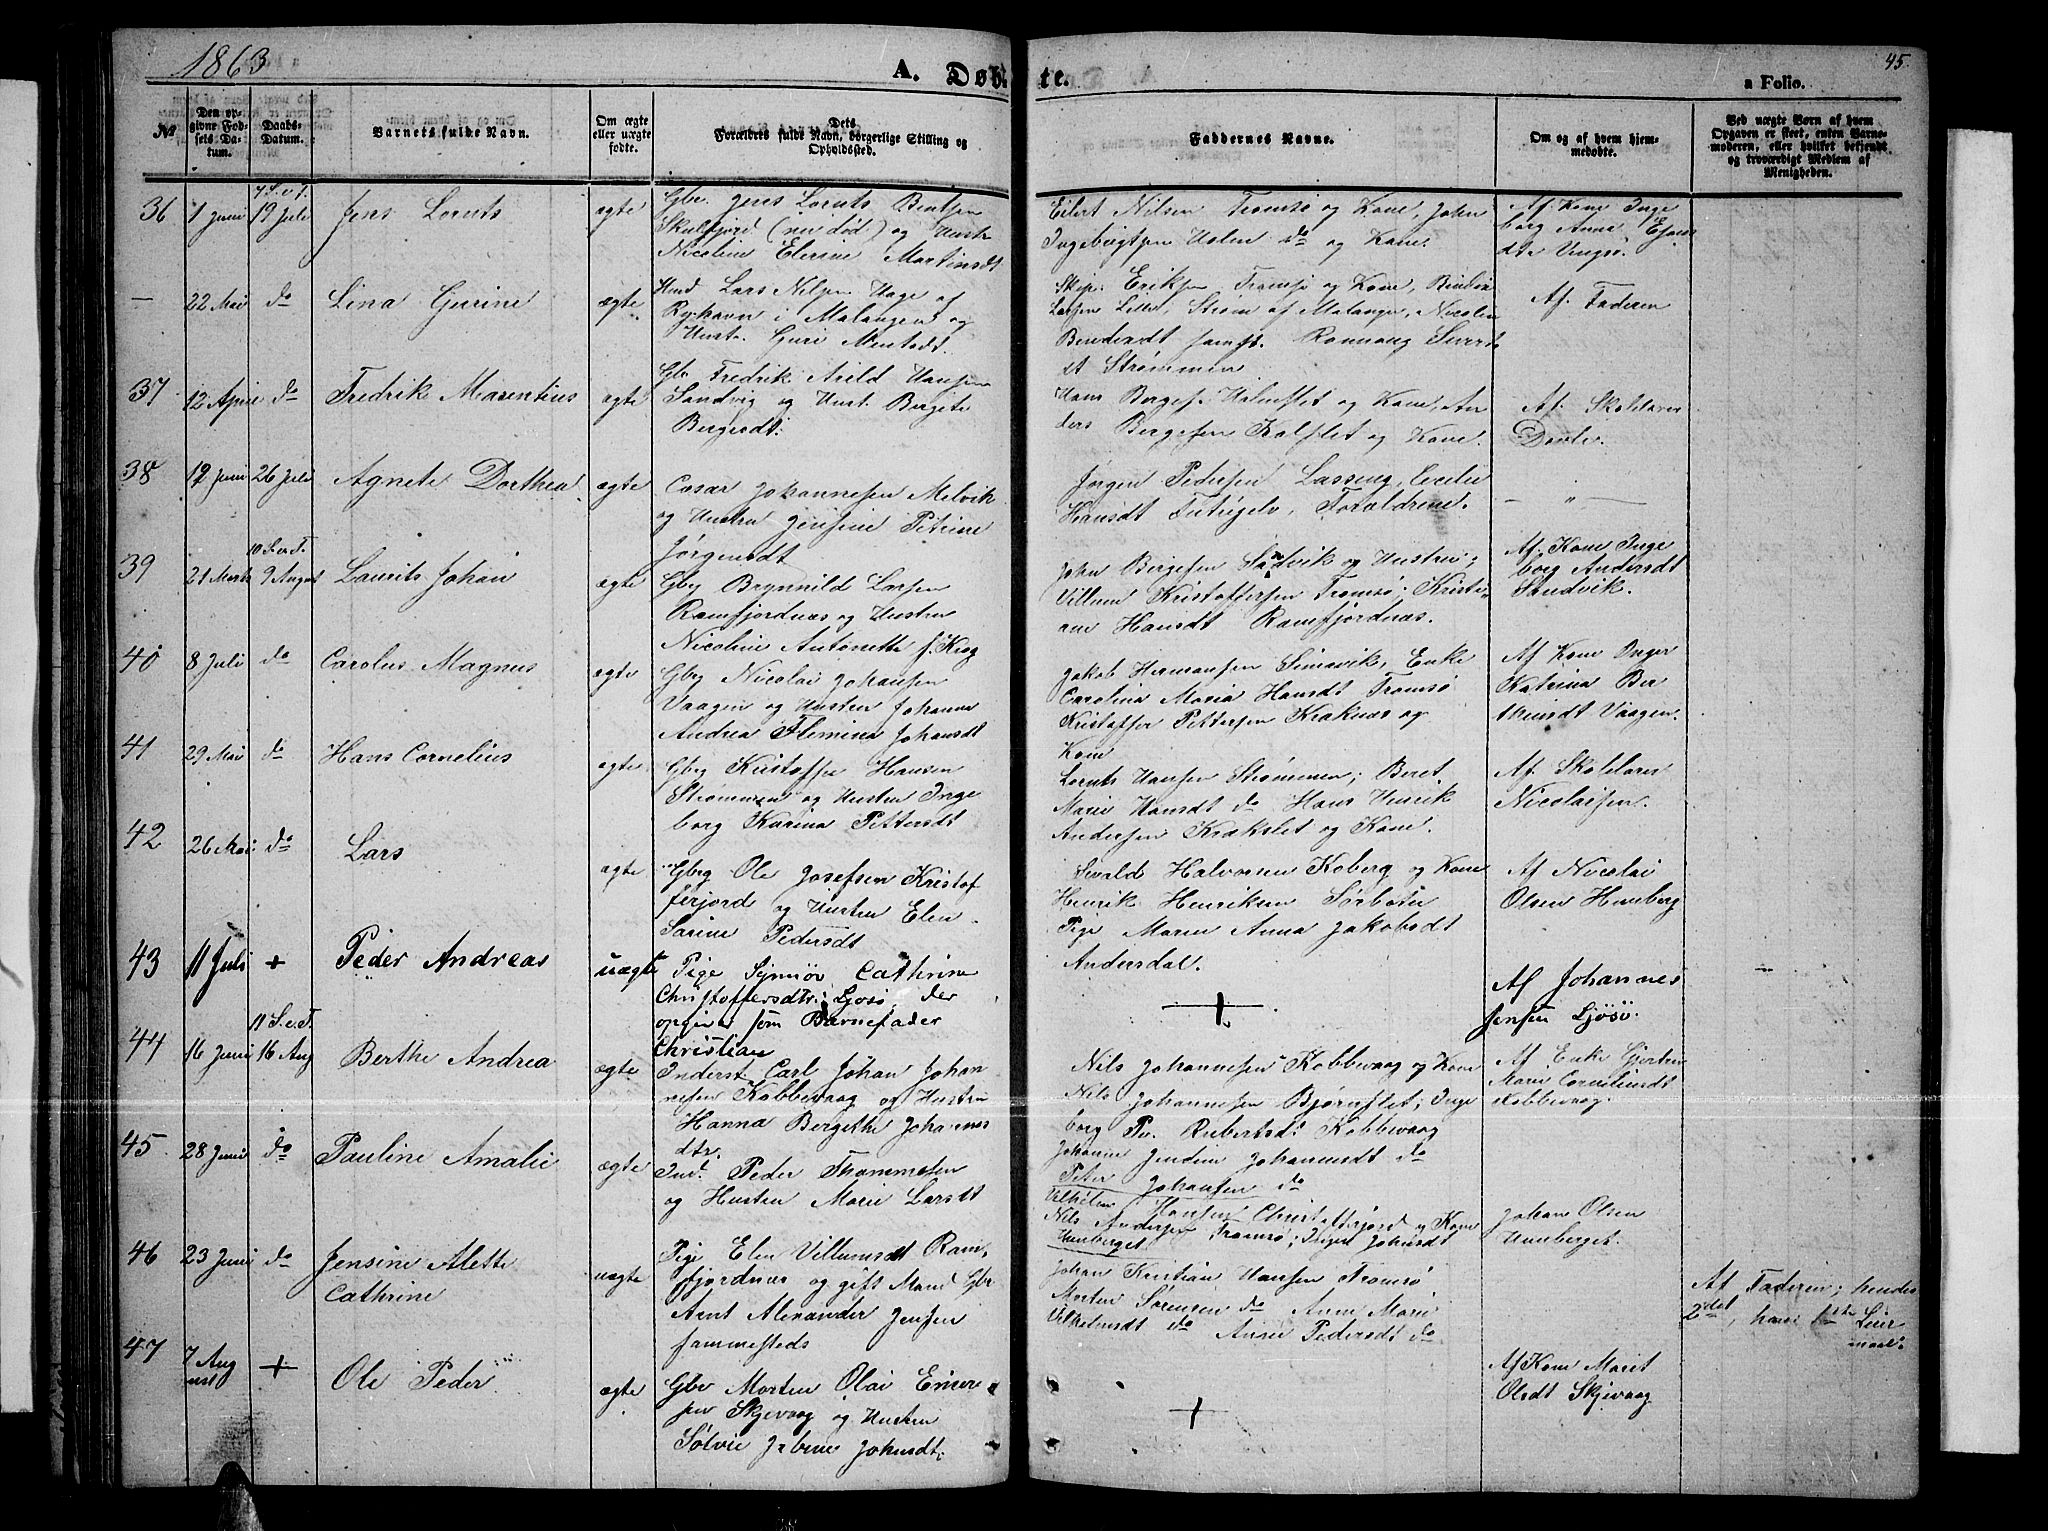 1863
A. Døbte.
45.
a Folio.
№
Den opgivne Fødsels Datum.
Daabs-Datum.
Barnets fulde Navn.
Om ægte eller uægte fødte.
Dets Forældres fulde Navn, borgerlige Stilling og Opholdssted.
Faddernes Navne.
Om og af hvem hjemmedøbte.
Ved uægte Børn af hvem Opgaven er skeet, enten Barnemoderen, eller hvilket bekjendt og troværdigt Medlem af Menigheden.
36 1 Juni 7 S. e. T. 19 Juli Jens Loruts ægte
Gbr. Jens Loruts Bentsen
Skulsfjord (nu død) og Hustr
Nicoline Elerine Martinsdt
Eilert Nilsen Tromsø og Kone, John
Ingebrigtsen Holen do og Kone
Af Kone Inge
borg Anna
Vengsø.
— 22 Mai do Lina Gurine ægte
Lars Nilsen Hage af
Ryhavn i Malangen og
Hust. Guri Mentsdt.
Skip. Eriksen Tromsø og Kone,
Larsen Lille, Strøm af Malangen, Nicoline
Ronnaug Sivert
Strømmen
Af Faderen
37 12 April do Fredrik Marentius ægte
Gb Fredrik Arild Hansen
Sandvig og Hust. Bergite
Bergesdt.
Hans Bergesen Holmslet og Kone, An
ders Bergesen Kalslet og Kone.
Af Skolelærer
Dovles.
38 12 Juni 26 Juli Agnete Dorthea ægte
Cæsar Johannesen Melvik
og Hustru Jensine Petrine
Jørgensdt
Jørgen Pedersen Cecilie
Hansdt Forældrene.
— " —
39 21 Marts 10 S. e. T. 9 August Laurits Johan ægte
Gbr Brynnild Larsen
Ramfjordnæs og Hustru
Nicoline Antonette f. Krog
John Bergesen Sandvik og Hustru;
Villum Kristoffersen Tromsø; Kristi
ane Hansdt Ramfjordnæs.
Af Kone Inge
borg Andersdt
Sandvik.
40 8 Juli do Carolus Magnus ægte
Gbr Nicolai Johansen
Vaagen og Hustru Johanna
Andrea Flemina Johansdt
Jakob Hermansen Simavik, Enke
Carolina Maria Hansdt Tromsø
Kristoffer Pettersen Kraknæs og
Kone
Af Kone Inger
Katrina Ber
Vaagen.
41 29 Mai do Hans Cornelius ægte
Gbr Kristoffer Hansen
Strømmen og Hustru Inge
borg Karina Pettersdt
Loruts Hansen Strømmen; Beret
Marie Hansdt do Hans Henrik
Andersen Krakslet og Kone.
Af Skolelærer
Nicolaisen.
42 26 Mai do Lars ægte
Gbr Ole Josefsen Kristof
ferjord og Hustru Elen
Sarine Pedersdt
Sivald Halvorsen Koberg og Kone
Henrik Henriksen Sørbotn
Pige Maren Anna Jakobsdt
Andersdal.
Af Nicolai
Olsen Hunberg
43 11 Juli + Peder Andreas uægte
Pige Synnøv Cathrine
Christoffersdtr. Ljosø, der
opgiver som Barnefader
Christian
+
Af Johannes
Jensen Ljøsø.
44 16 Juni 11 S. e. T. 16 Aug Berthe Andrea ægte
Inderst Carl Johan Johan
nesen Kobbevaag og Hustru
Hanna Bergithe Johannes
dtr.
Nils Johannesen Kobbevaag og Kone
Nils Johannesen Bjørnslet; Inge
borg Pe. Rubertsdt Kobbevaag
Johanne Jensine Johannesdt do
Peter Johansen do
Af Enke Gjertru
Marie Corneliusdt
Kobbevaag.
45 28 Juni do Pauline Amalie ægte
Ind. Peder Thommesen
og Hustru Marie Larsdt
Hunberget.
Vilhelm Hansen Christofferjord og Kone
Nils Andersen Tromsø; Inger Johnsdt
Johan Olsen
Hunberget.
46 23 Juni do Jensine Alette
Cathrine
uægte
Pige Elen Villumsdt Ram
fjordnæs og gift Mand Gbr
Arnt Alexander Jensen
sammesteds
Johan Kristian Hansen Tromsø
Morten Sørensen do Anne Marie
Vilhelmsdt do Anne Pedersdt do
Af Faderen; hendes
2det, hans 1ste Leier
maal.
47 7 Aug
ust
+ Ole Peder ægte
Gbr Morten Olai Einer
sen Skjevaag og Hustru
Sølvie Jakobine Johnsdt
+
Af Kone Marit
Olsdt Skjevaag